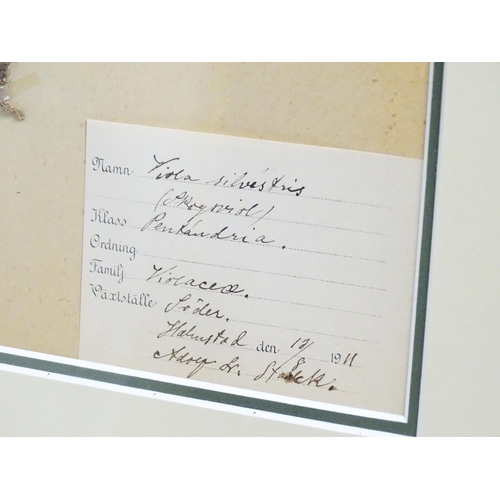 Namn Viola silvéstris
(Skogsviol)
Klass Pentandria.
Ordning
Familj Violaceæ.
Växtställe Söder.
Halmstad den 12/ 1911
Adolf